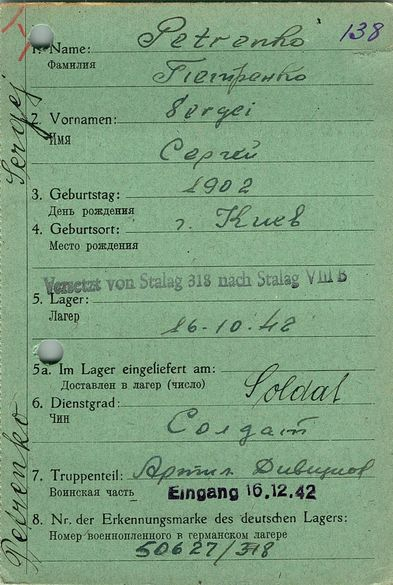 138
1. Name: Petrenko
Фамилия
Петренко
2. Vornamen: Sergei
Имя
Сергей
3. Geburtstag: 1902
День рождения
4. Geburtsort: г. Киев
Место рождения
Versetzt von Stalag 318 nach Stalag VIII B
5. Lager:
Лагер
16-10-42
5a. Im Lager eingeliefert am:
Доставлен в лагер (число)
Soldat
6. Dienstgrad:
Чин
Солдат
7. Truppenteil: Артил Дивизион
Воинская часть
Eingang 16.12.42
8. Nr. der Erkennungsmarke des deutschen Lagers:
Номер военнопленного в германском лагере
50627/318
Petrenko Sergej